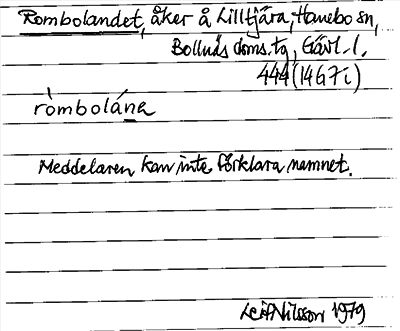 Rombolandet, åker å Lilltjära, Hanebo sn,
Bollnäs doms. tg, Gävl. l.
444 (14G7i)
ròmbolána
Meddelaren kan inte förklara namnet.
Leif Nilsson 1979